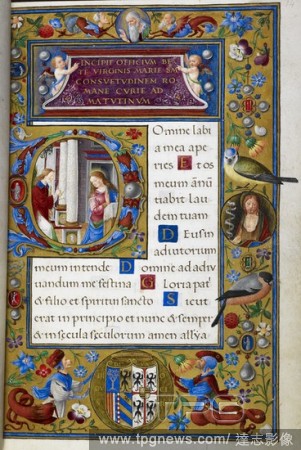 INCIPIT OFFICIUM BEA
TE VIRGINIS MARIE SM
CONSVETVDINEM RO
MANE CVRIE AD
MATVTINVM
Omne labi
a mea ape
ries Et os
meum ānū
tiabit lau
dem tuam
Deus in
adiutorium
meum intende Domine ad adiu
uandum me festina Gloria pat'
& filio et spiritui sancto Sicut
erat in principio et nunc & semper
& in secula seculorum amen allya
TPG
www.tpgnews.com/達志影像